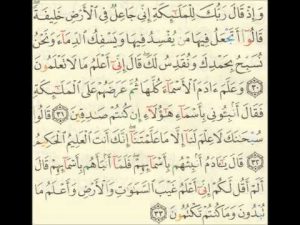 وَإِذْ قَالَ رَبُّكَ لِلْمَلَٰٓئِكَةِ إِنِّى جَاعِلٌ فِى ٱلْأَرْضِ خَلِيفَةً
قَالُوٓا۟ أَتَجْعَلُ فِيهَا مَن يُفْسِدُ فِيهَا وَيَسْفِكُ ٱلدِّمَآءَ وَنَحْنُ
نُسَبِّحُ بِحَمْدِكَ وَنُقَدِّسُ لَكَ قَالَ إِنِّىٓ أَعْلَمُ مَا لَا تَعْلَمُونَ
٣٠ وَعَلَّمَ ءَادَمَ ٱلْأَسْمَآءَ كُلَّهَا ثُمَّ عَرَضَهُمْ عَلَى ٱلْمَلَٰٓئِكَةِ
فَقَالَ أَنۢبِـُٔونِى بِأَسْمَآءِ هَٰٓؤُلَآءِ إِن كُنتُمْ صَٰدِقِينَ ٣١ قَالُوا۟
سُبْحَٰنَكَ لَا عِلْمَ لَنَآ إِلَّا مَا عَلَّمْتَنَآ إِنَّكَ أَنتَ ٱلْعَلِيمُ ٱلْحَكِيمُ
٣٢ قَالَ يَٰٓـَٔادَمُ أَنۢبِئْهُم بِأَسْمَآئِهِمْ فَلَمَّآ أَنۢبَأَهُم بِأَسْمَآئِهِمْ قَالَ
أَلَمْ أَقُل لَّكُمْ إِنِّىٓ أَعْلَمُ غَيْبَ ٱلسَّمَٰوَٰتِ وَٱلْأَرْضِ وَأَعْلَمُ مَا
تُبْدُونَ وَمَا كُنتُمْ تَكْتُمُونَ ٣٣